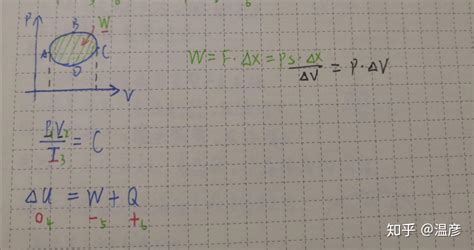 P B W
A C
D
V
W = F · Δx = P s · Δx = P · ΔV
ΔV
P₁V₂ / T₃ = C
ΔU = W + Q
0₄ −₅ +₆
知乎 @温彦